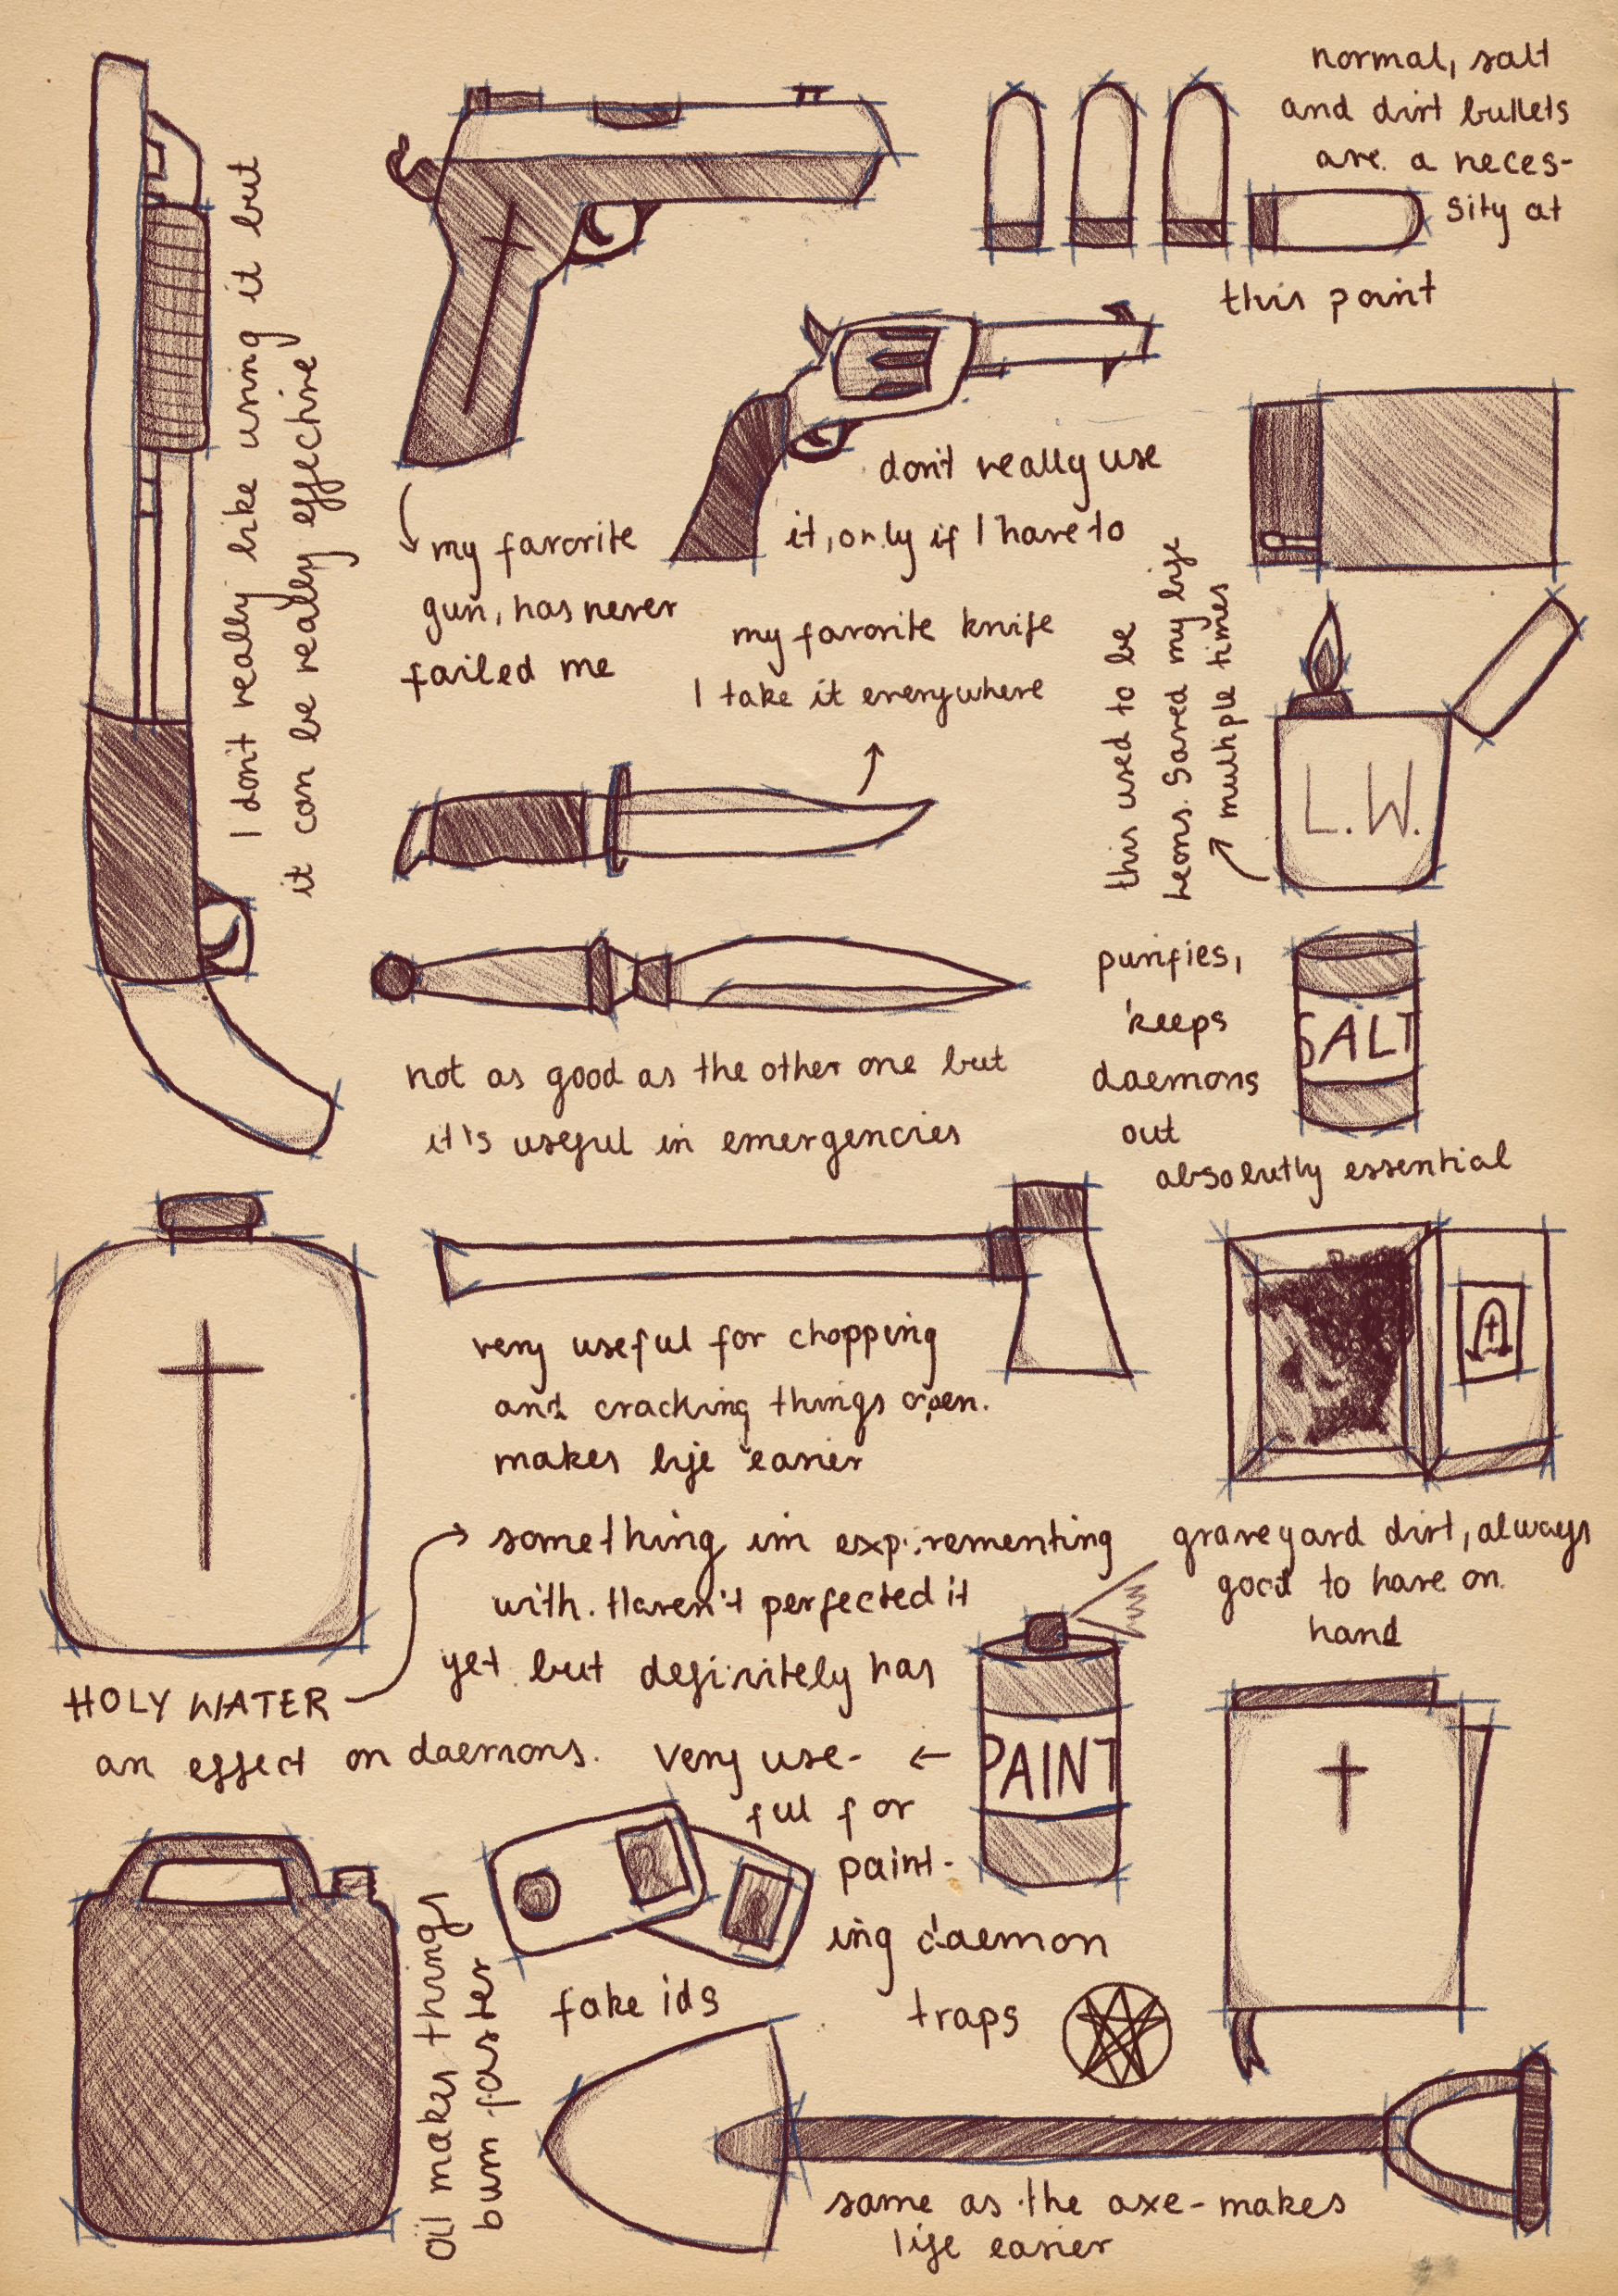 normal, salt
and dirt bullets
are a neces-
sity at
this point
I don't really like using it but
it can be really effective
my favorite
gun, has never
failed me
don't really use
it, only if I have to
my favorite knife
I take it everywhere
this used to be
Leons. Saved my life
multiple times
L.W.
not as good as the other one but
it's useful in emergencies
purifies,
keeps
daemons
out
absolutly essential
SALT
very useful for chopping
and cracking things open.
makes life easier
graveyard dirt, always
good to have on
hand
HOLY WATER
something im expirementing
with. Haven't perfected it
yet but definitely has
an effect on daemons.
very use-
ful for
paint-
ing daemon
traps
PAINT
fake ids
oil makes things
burn faster
same as the axe - makes
life easier